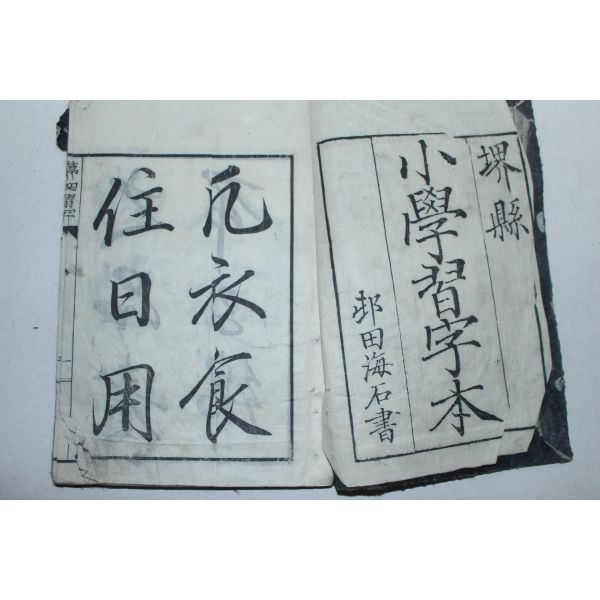 堺縣
小學習字本
邨田海石書
凡衣食
住日用